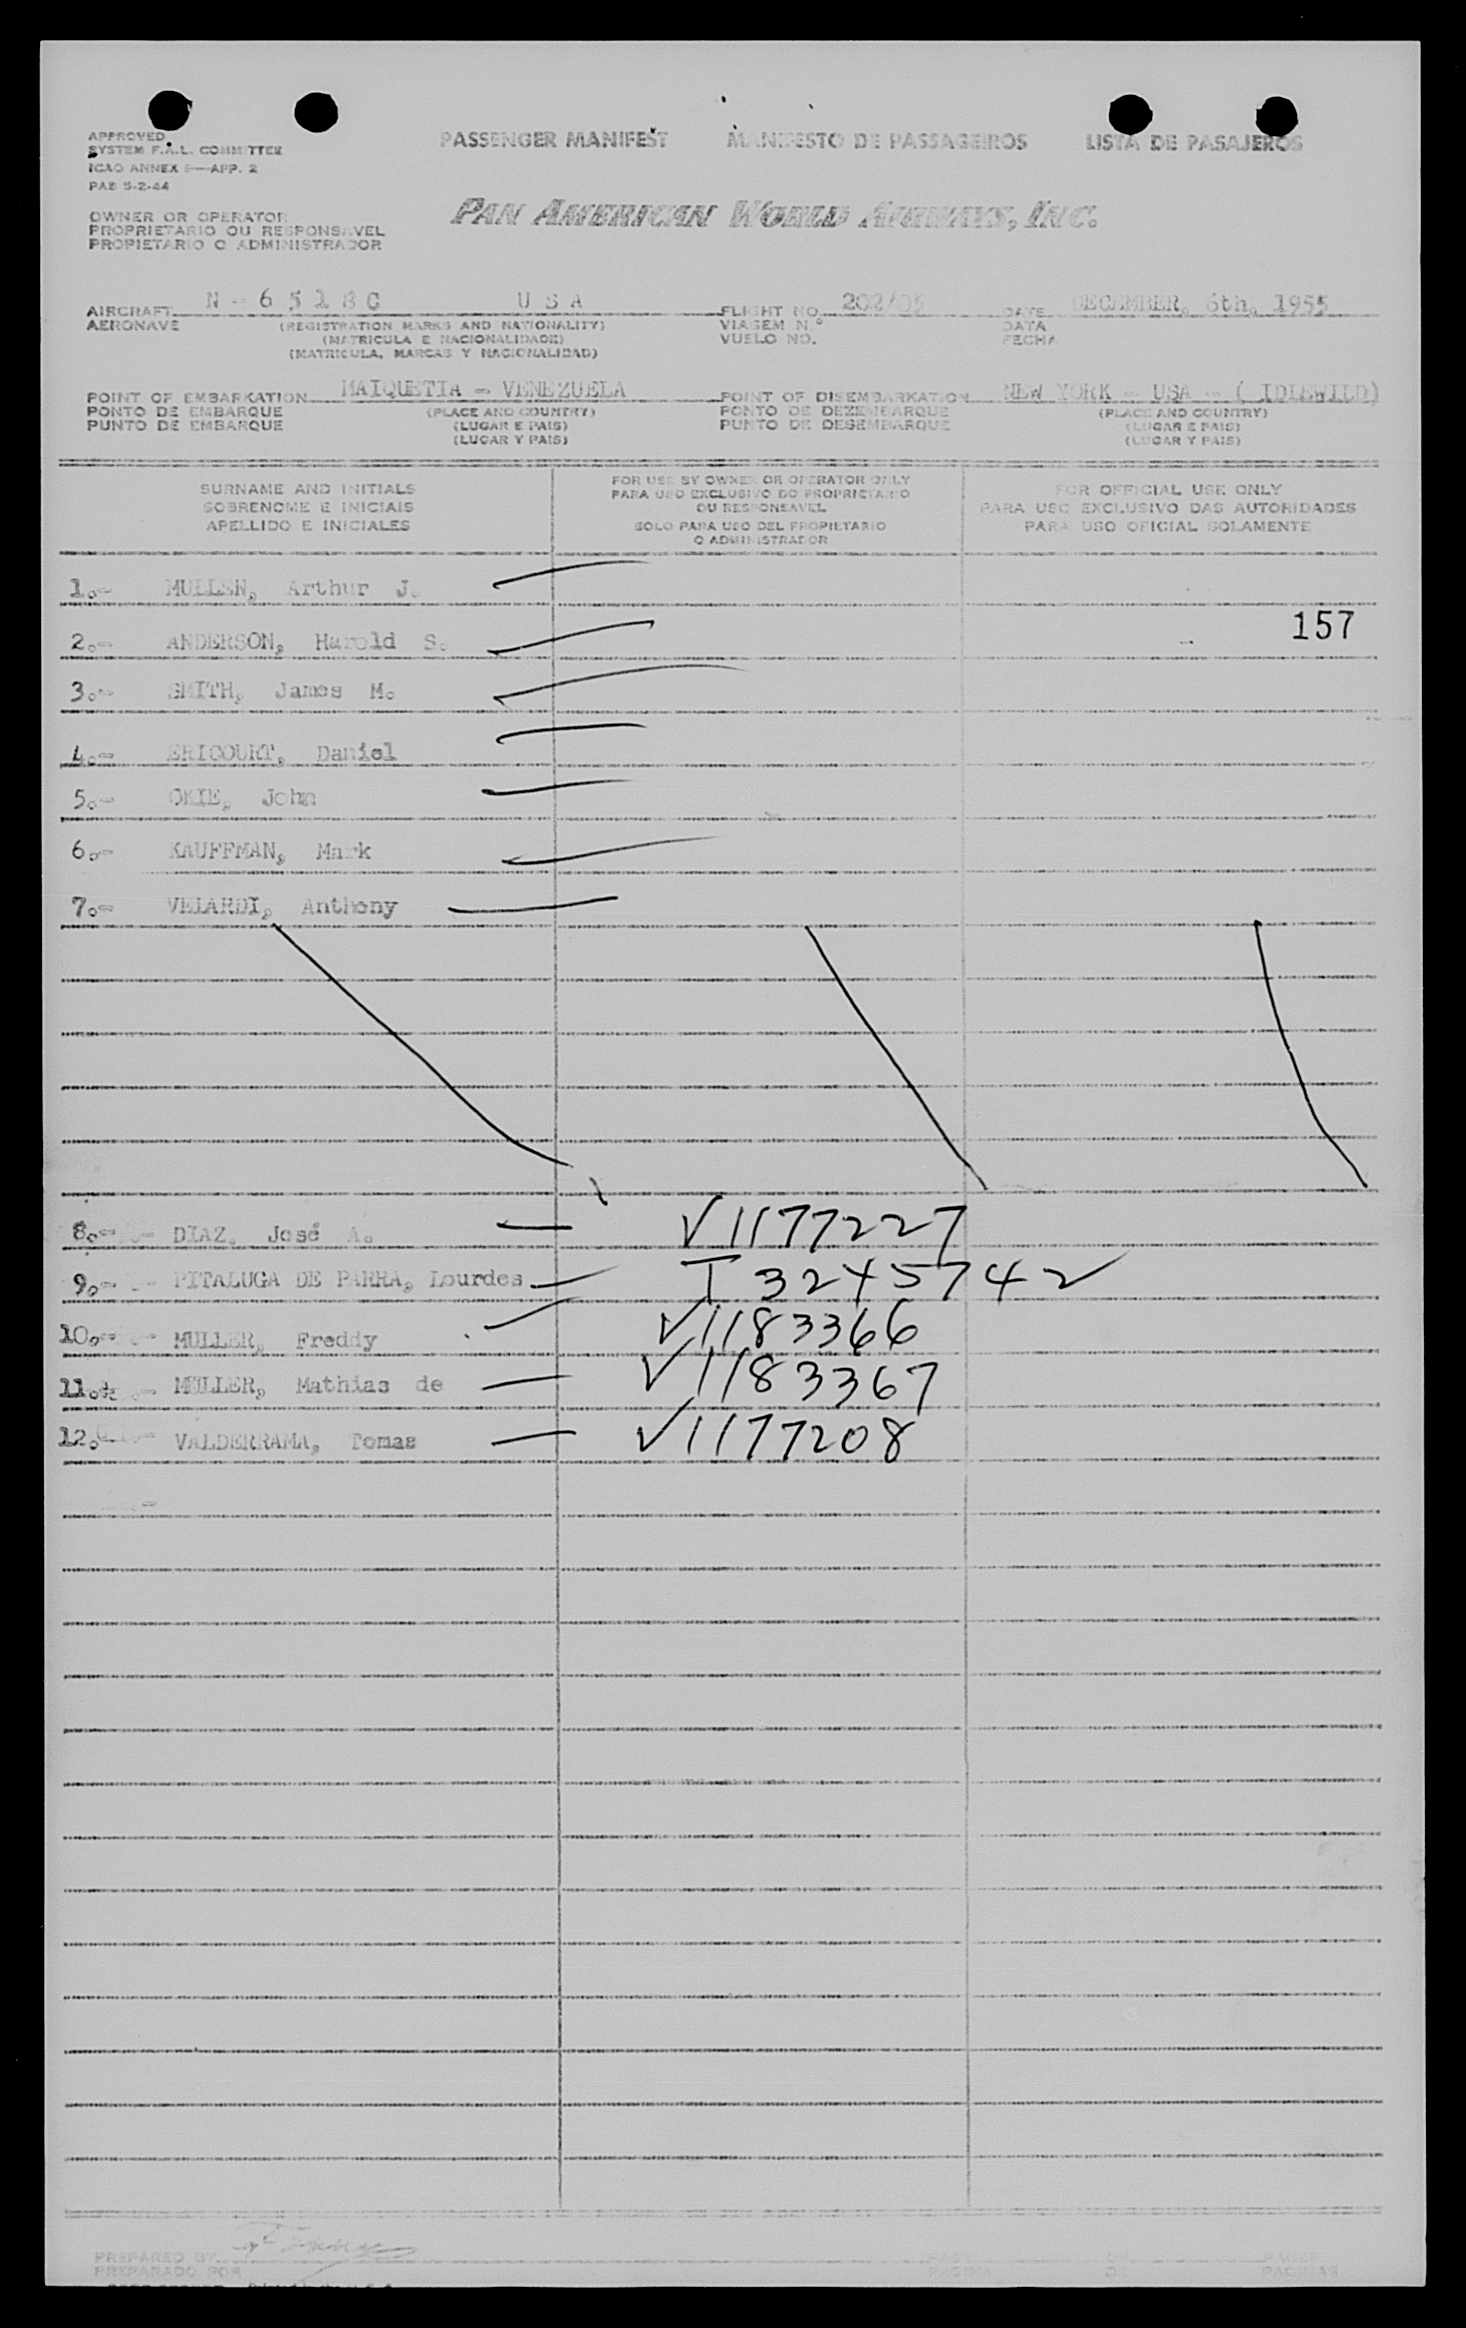 APPROVED
SYSTEM F.A.L. COMMITTEE
ICAO ANNEX 9—APP. 2
PAB 5-2-44
PASSENGER MANIFEST MANIFESTO DE PASSAGEIROS LISTA DE PASAJEROS
OWNER OR OPERATOR
PROPRIETARIO OU RESPONSAVEL
PROPIETARIO O ADMINISTRADOR
PAN AMERICAN WORLD AIRWAYS, INC.
AIRCRAFT N - 6 5 1 8 C U S A FLIGHT NO. 202/05 DATE DECEMBER, 6th, 1955
AERONAVE (REGISTRATION MARKS AND NATIONALITY) VIAGEM N.º DATA
(MATRICULA E NACIONALIDADE) VUELO NO. FECHA
(MATRICULA, MARCAS Y NACIONALIDAD)
POINT OF EMBARKATION MAIQUETIA - VENEZUELA POINT OF DISEMBARKATION NEW YORK - USA - ( IDLEWILD)
PONTO DE EMBARQUE (PLACE AND COUNTRY) PONTO DE DEZEMBARQUE (PLACE AND COUNTRY)
PUNTO DE EMBARQUE (LUGAR E PAIS) PUNTO DE DESEMBARQUE (LUGAR E PAIS)
(LUGAR Y PAIS) (LUGAR Y PAIS)
SURNAME AND INITIALS
SOBRENOME E INICIAIS
APELLIDO E INICIALES
FOR USE BY OWNER OR OPERATOR ONLY
PARA USO EXCLUSIVO DO PROPRIETARIO
OU RESPONSAVEL
SOLO PARA USO DEL PROPIETARIO
O ADMINISTRADOR
FOR OFFICIAL USE ONLY
PARA USO EXCLUSIVO DAS AUTORIDADES
PARA USO OFICIAL SOLAMENTE
1.- MULLEN, Arthur J.
157
2.- ANDERSON, Harold S.
3.- SMITH, James M.
4.- ERICOURT, Daniel
5.- OKIE, John
6.- KAUFFMAN, Mark
7.- VELARDI, Anthony
8.- DIAZ, José A. V1177227
9.- PITALUGA DE PARRA, Lourdes T 3245742
10.- MULLER, Freddy V1183366
11.- MULLER, Mathias de V1183367
12.- VALDERRAMA, Tomas V1177208
PREPARED BY
PREPARADO POR